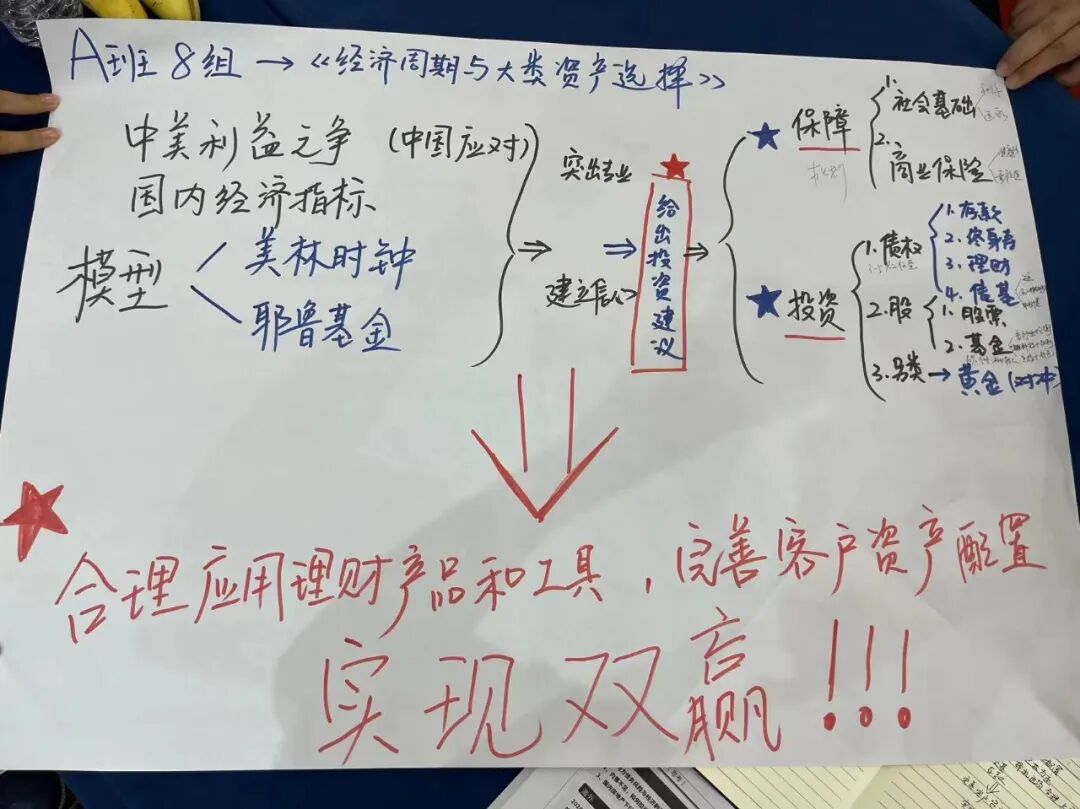 A班8组→《经济周期与大类资产选择》
中美利益之争(中国应对)
国内经济指标
模型
美林时钟
耶鲁基金
突出专业
建立信心
给出投资建议
保障
1. 社会基础
2. 商业保险
投资
1. 债权
1. 存款
2. 终身寿
3. 理财
4. 债基
2. 股
1. 股票
2. 基金
3. 另类→黄金(对冲)
合理应用理财产品和工具,完善客户资产配置
实现双赢!!!